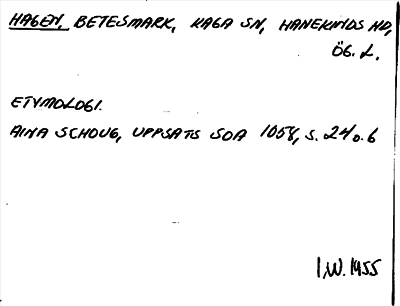 HAGEN, BETESMARK, KAGA SN, HANEKINDS HD,
ÖG. L.
ETYMOLOGI.
AINA SCHOUG, UPPSATS SOA 1058, S. 24 o. 6
I.W. 1955